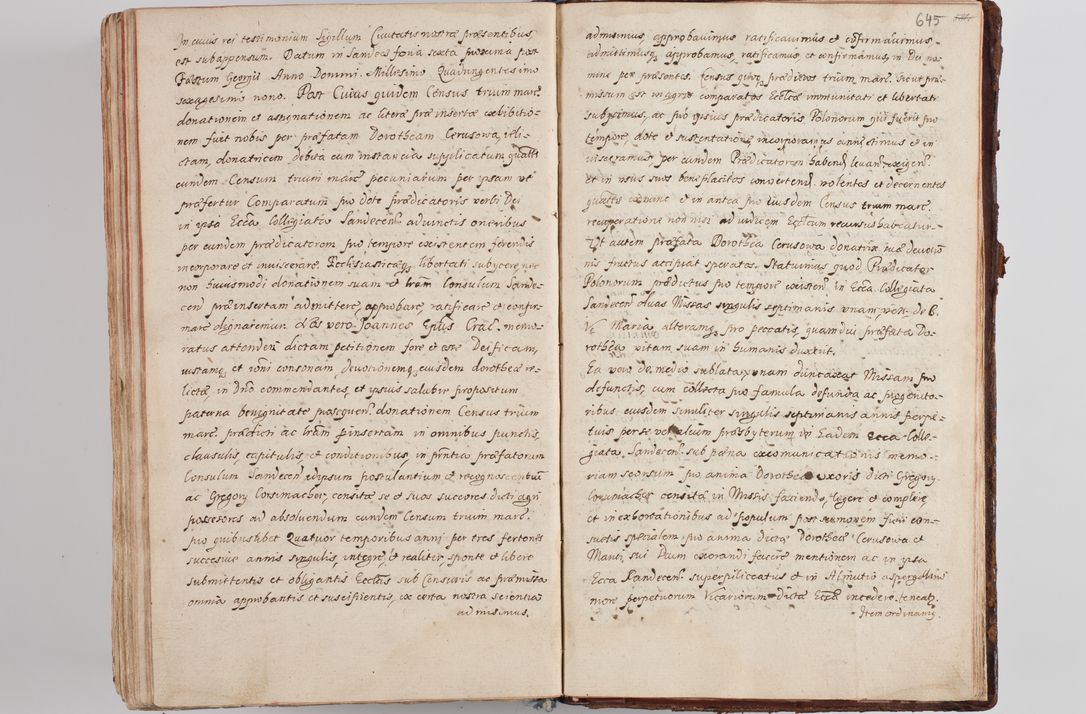 In cuius rei testimonium Sigillum Civitatis nostræ præsentibus
est subappensum. Datum in Sandecz feria sexta proxima post
Festum Georgii Anno Domini Millesimo Quadringentesimo
sexagesimo nono. Post Cuius quidem Census trium marc.
donationem et assignationem ac literæ præinsertæ exhibitio-
nem fuit nobis per præfatam Dorotheam Cerusowa, reli-
ctam, donatricem debita cum instantia supplicatum quatts
eundem Censum trium marc. pecuniarum per ipsam ut
præfertur Comparatum pro dote prædicatoris verbi Dei
in ipsa Eccã Collegiata Sandecen. adiunctis oneribus
per eundem prædicatorem pro tempore existentem ferendis
incorporare et inviscerare Ecclesiasticæq; libertati subijcere, nec
non huiusmodi donationem suam et lrãm Consulum Sande-
cen. præinsertam admittere, approbare, ratificare et confir-
mare dignaremur. Nos vero Joannes Epũs Crac. memo-
ratus attenden. dictam petitionem fore et esse Deificam,
iustamq; et iõni consonam, devotionemq; eiusdem dorotheæ re-
lictæ in Dño commendantes, et ipsius salubre propositum
paterna benignitate prosequen. donationem Census trium
marc. prædicti ac lrãm præinsertam in omnibus punctis,
clausulis, capitulis, et conditionibus, in pñtia præfatorum
Consulum Sandecen. id ipsum postulantium et recognoscentiũ
ac Gregory Corsimacher, censitæ se et suos succores dicti agri
possessores ad absolvendum eundem Censum trium marc.
pro quibuslibet Quatuor temporibus anni per tres fertones
successive annis singulis, integrè, et realiter, sponte et libere
submittentis et obligantis Ecclũs sub Censuris ac præmissa
omnia approbantis et suscipientis, ex certa nostra scientia
admisimus.
645
admisimus, approbavimus, ratificavimus et cõfirmavimus,
admittimusq; approbamus, ratificamus et confirmamus, in Dei no-
mine per præsentes. Census quoq; prædictos trium marc. sicut præ-
missum est integrè comparatos Ecclicæ immunitati et libertati
subijcimus, ac pro ipsius prædicatoris Polonorum qui fuerit pro
tempore, dote et sustentatione, incorporamus annectimus et in
visceramus per eundem Prædicatorem haben. levan. exigen.
et in usus suos beneplacitos converten. volentes et decernentes
quatts ex nunc et in antea pro eiusdem Census trium marc.
recuperatione non nisi ad iudicem Ecclicum recursus habeatur.
Ut autem præfata Dorothea Cerusowa donatrix suæ devotio-
nis fructus accipiat speratos. Statuimus quod Prædicator
Polonorum prædictus pro tempore existen. in Eccã Collegiata
Sandecen duas Missas singulis septimanis unam vot. de B.
V. Maria alteramq; pro peccatis, quamdiu præfata Do-
rothea vitam suam in humanis duxerit,
Ea vero de medio sublata, unam duntaxat Missam pro
defunctis, cum collecta pro famula defuncta ac progenito-
ribus eiusdem similiter singulis septimanis annis perpe-
tuis per se vel alium præsbyterum in Eadem Eccã Colle-
giata Sandecen. sub pæna excomunicationis memo-
riam seorsum pro anima Dorotheæ uxoris dicti Gregory.
Corsimacher censitæ in Missis faciendo, legere et complere,
et in exhortationibus ad populum post sermonem fieri con-
suetis specialem pro anima dictæ Dorotheæ Cerusowa et
Mariti sui Deum exorandi facere mentionem ac in ipsa
Eccã Sandecen. superpiliceatus et in Almutio aspergellino
more perpetuorum Vicariorum dictæ Eccã incedere teneatr.
Item ordinamq